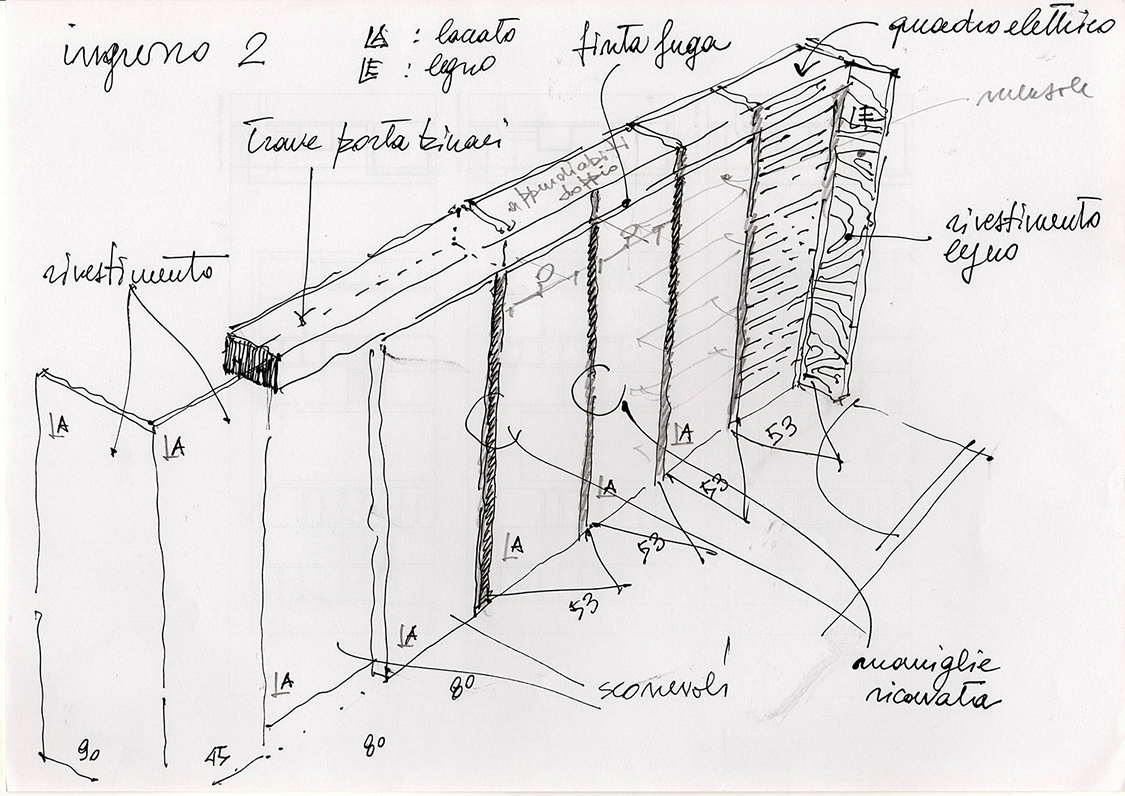 ingresso 2
LA : laccato
LE : legno
finta fuga
quadro elettrico
mensole
trave porta binari
appendiabiti
doppio
LE
rivestimento
rivestimento
legno
LA
LA
LA
LA
LA
LA
LA
53
53
53
53
80
80
45
90
scorrevoli
maniglie
ricavata